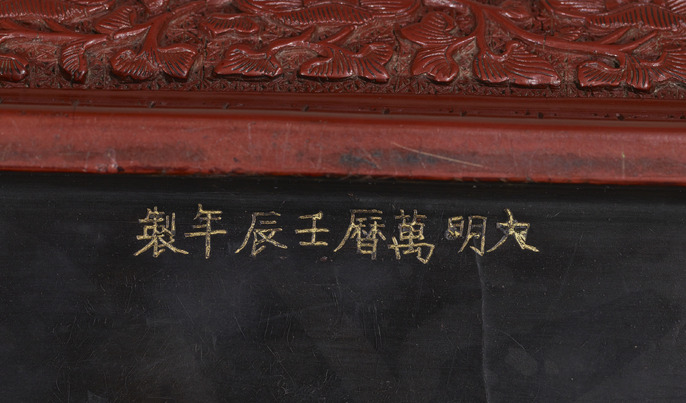 大明萬曆壬辰年製